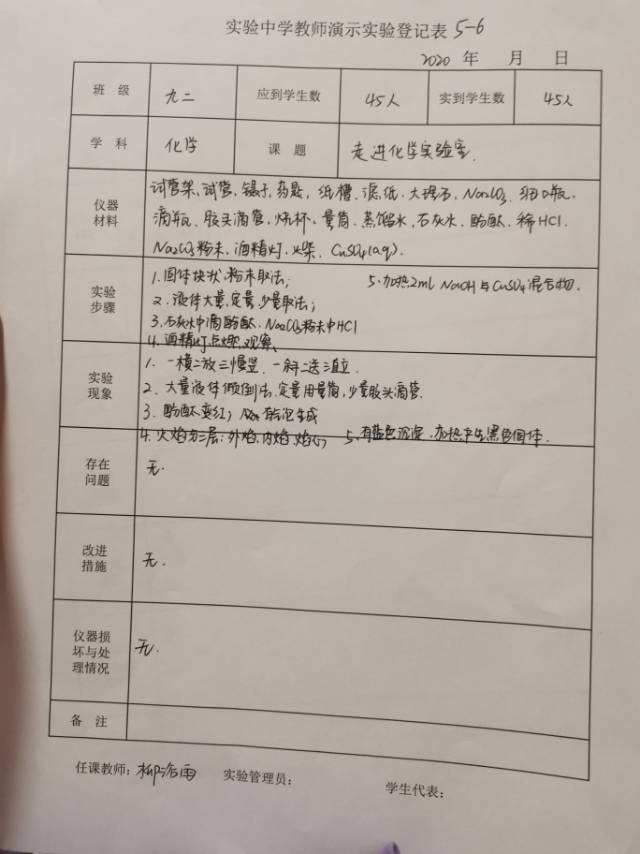 实验中学教师演示实验登记表 5-6
2020 年 月 日
班 级 九二 应到学生数 45人 实到学生数 45人
学 科 化学 课 题 走进化学实验室.
仪器材料
试管架、试管、镊子、药匙、纸槽、滤纸、大理石、Na2CO3、细口瓶、
滴瓶、胶头滴管、烧杯、量筒、蒸馏水、石灰水、酚酞、稀HCl.
Na2CO3粉末、酒精灯、火柴、CuSO4(aq).
实验步骤
1.固体块状、粉末取法; 5.加热2ml NaOH与CuSO4混合物.
2.液体大量,定量,少量取法;
3.石灰水中滴酚酞、Na2CO3粉末中HCl
4.酒精灯点燃、观察.
实验现象
1. 一横二放三慢竖、一斜二送三直立.
2. 大量液体倾倒法,定量用量筒,少量胶头滴管.
3. 酚酞变红; 有气泡生成
4. 火焰分三层:外焰、内焰、焰心; 5.有蓝色沉淀.加热产生黑色固体.
存在问题
无.
改进措施
无.
仪器损坏与处理情况
无.
备 注
任课教师: 实验管理员: 学生代表: